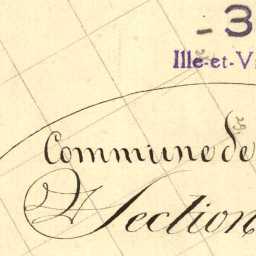 - 3
Ille-et-V
Commune de
Section